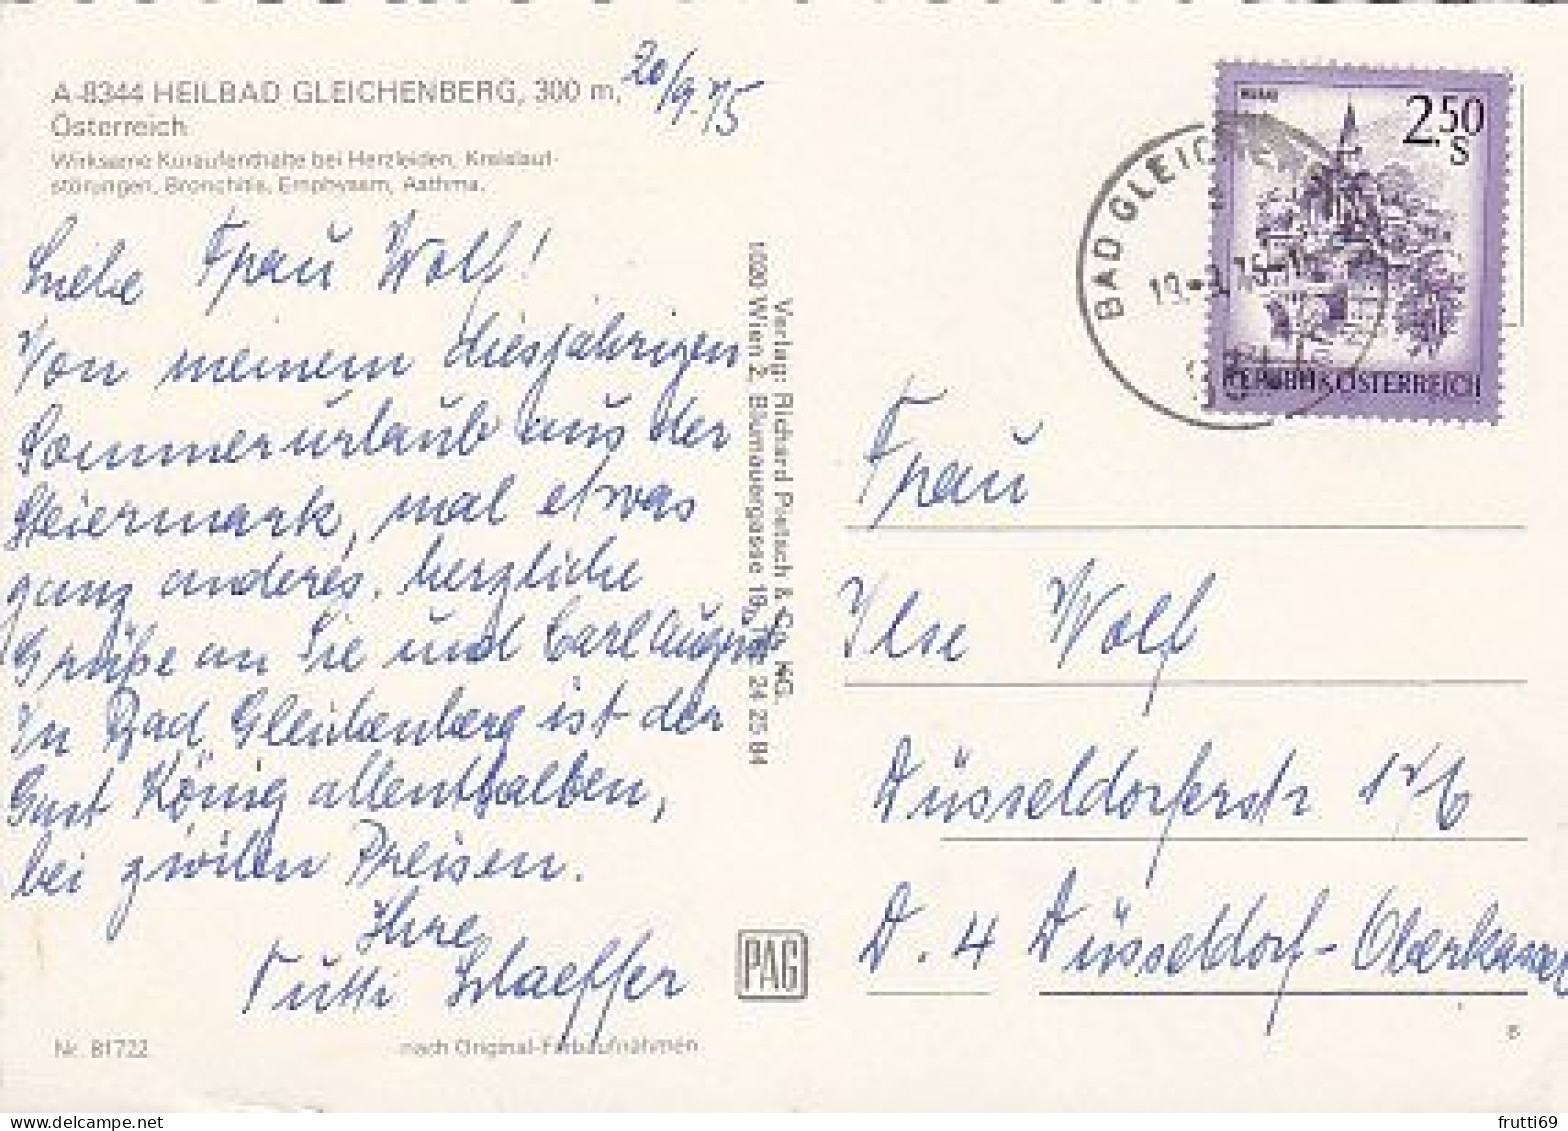 A-8344 HEILBAD GLEICHENBERG, 300 m,
Österreich
Wirksame Kuraufenthalte bei Herzleiden, Kreislauf-
störungen, Bronchitis, Emphysem, Asthma.
20/9.75
Liebe Frau Wolf!
Von meinem diesjährigen
Sommerurlaub aus der
Steiermark, mal etwas
ganz anderes. herzliche
Grüße an Sie und Carl August
In Bad Gleichenberg ist der
Gast König allenthalben,
bei zivilen Preisen.
Ihre
Tutti Schaeffer
Nr. 81722
nach Original-Farbaufnahmen
Verlag: Richard Pietsch & Co. KG.
1020 Wien 2, Blumauergasse 19, 24 25 84
PAG
BAD GLEICHENBERG
2.50
S
REPUBLIK ÖSTERREICH
Frau
Ilse Wolf
Düsseldorferstr
D. 4 Düsseldorf-Oberkassel
8
frutti69